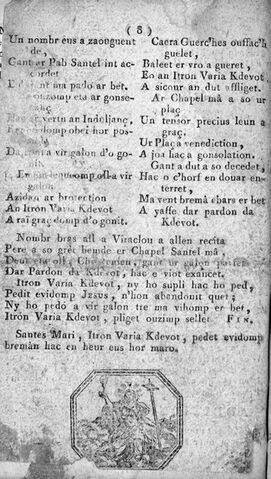 ( 8 )
Un nombr eus a zaouguent
de,
Gant ar Pab Santel int ac-
cordet
ma pado ar bet.
ouzomp eta ar gonse-
ar vertu an Induljanç,
domp obet hor pos-
vir galon d'o go-
nit.
a vir
galon,
Azidan ar protection
An Itron Varia Kdevot
A raï graç domp d'o gonit.
Caera Guerc'hes ouffac'h
guelet,
Baleet er vro a gueret,
Eo an Itron Varia Kdevot.
A sicour an dut affliget.
Ar Chapel mâ a so ur
plaç
Un tensor precius leun a
graç.
Ur Plaça venediction,
A joa hac a gonsolation.
Gant a dut a so decedet,
Hac o c'horf en douar en-
terret,
Ma vent bremâ ebars er bet
A yaffe dar pardon da
Kdevot.
Nombr bras all a Viraclou a allen recita
Pere a so gret bemde er Chapel Santel mâ,
Deut eta oll, gant ur galon
Dar Pardon da Kdevot, hac e viot exaucet.
Itron Varia Kdevot, ny ho supli hac ho ped,
Pedit evidomp Jesus, n'hon abandonit quet;
Ny ho pedo a vir galon tre ma vihomp er bet,
Itron Varia Kdevot, pliget ouzimp sellet FIN.
Santes Mari, Itron Varia Kdevot, pedet evidomp
bremân hac en heur eus hor maro.